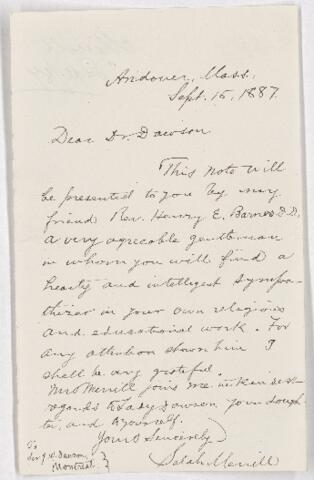 Andover, Mass.,
Sept. 15, 1887.
Dear Dr. Dawson
This note will
be presented to you by my
friend Rev. Henry E. Barnes D.D.
a very agreeable gentleman
in whom you will find a
hearty and intelligent sympa-
thizer in your own religious
and educational work. For
any attention shown him I
shall be very grateful.
Mrs Merrill joins me in kindest
regards to Lady Dawson, your daugh-
ter, and yourself.
Yours Sincerely
Selah Merrill
To
Sir J. W. Dawson
Montreal